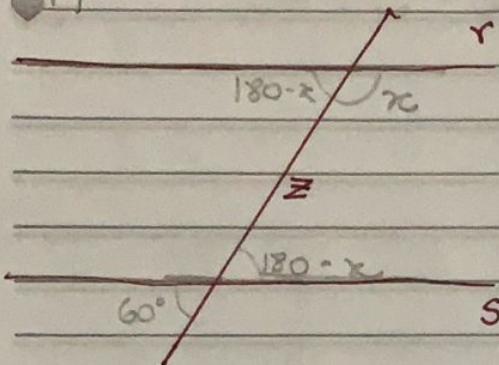 r
180-x x
Z
180-x
60°
S